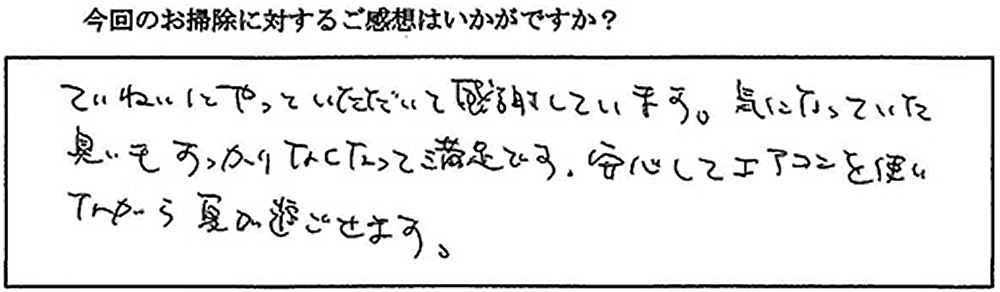 今回のお掃除に対するご感想はいかがですか？
ていねいにやっていただいて感謝しています。気になっていた
臭いもすっかりなくなって満足です。安心してエアコンを使い
ながら夏が過ごせます。